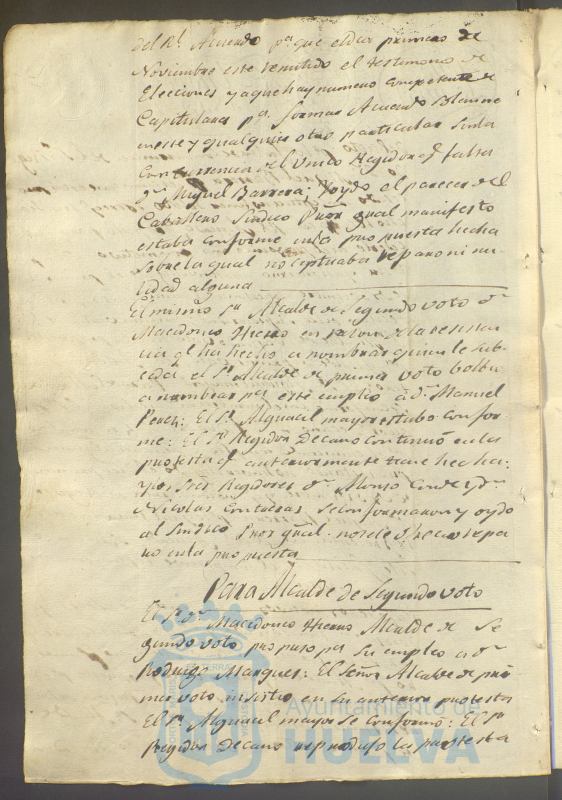 del Rl. Acuerdo pa. que el dia primero de
Noviembre este remitido el testimonio de
Elecciones y aque hay numero competente de
Capitulares pa. formar Acuerdo
y qualquier otro particular sin la
Concurrencia del Unico Regidor qe. falta
Dn. Miguel Barrera; Y oydo el parecer del
Caballero Sindico Pror. gral manifesto
estaba conforme en la propuesta hecha
sobre la qual no reparo ni nu
lidad alguna
El mismo Sr. Alcalde de Segundo voto Dn.
Macedonio Hierro en razon de la
qe. ha hecho a nombrar quien le sub
ceda el Sr. Alcalde de primer voto
a nombrar pa. este empleo a Dn. Manuel
Perez: El Sr. Alguacil mayor estubo confor
me: El Sr. Regidor Decano continuó en la
protesta qe. anteriormente tiene hecha:
y los Sres. Regidores Dn. Alonso Conde y Dn.
Nicolas Contreras se conformaron y oydo
al Sindico Pror. gral. no se le ofrecio repa
ro en la propuesta
Para Alcalde de Segundo voto
El Sr. Dn. Macedonio Hierro Alcalde de Se
gundo voto propuso pa. su empleo a Dn.
Rodrigo Marques: El Señor Alcalde de pri
mer voto insistio en su anterior protesta
El Sr. Alguacil mayor se conformó: El Sr.
Regidor Decano reprodujo la protesta
Ayuntamiento de
HUELVA